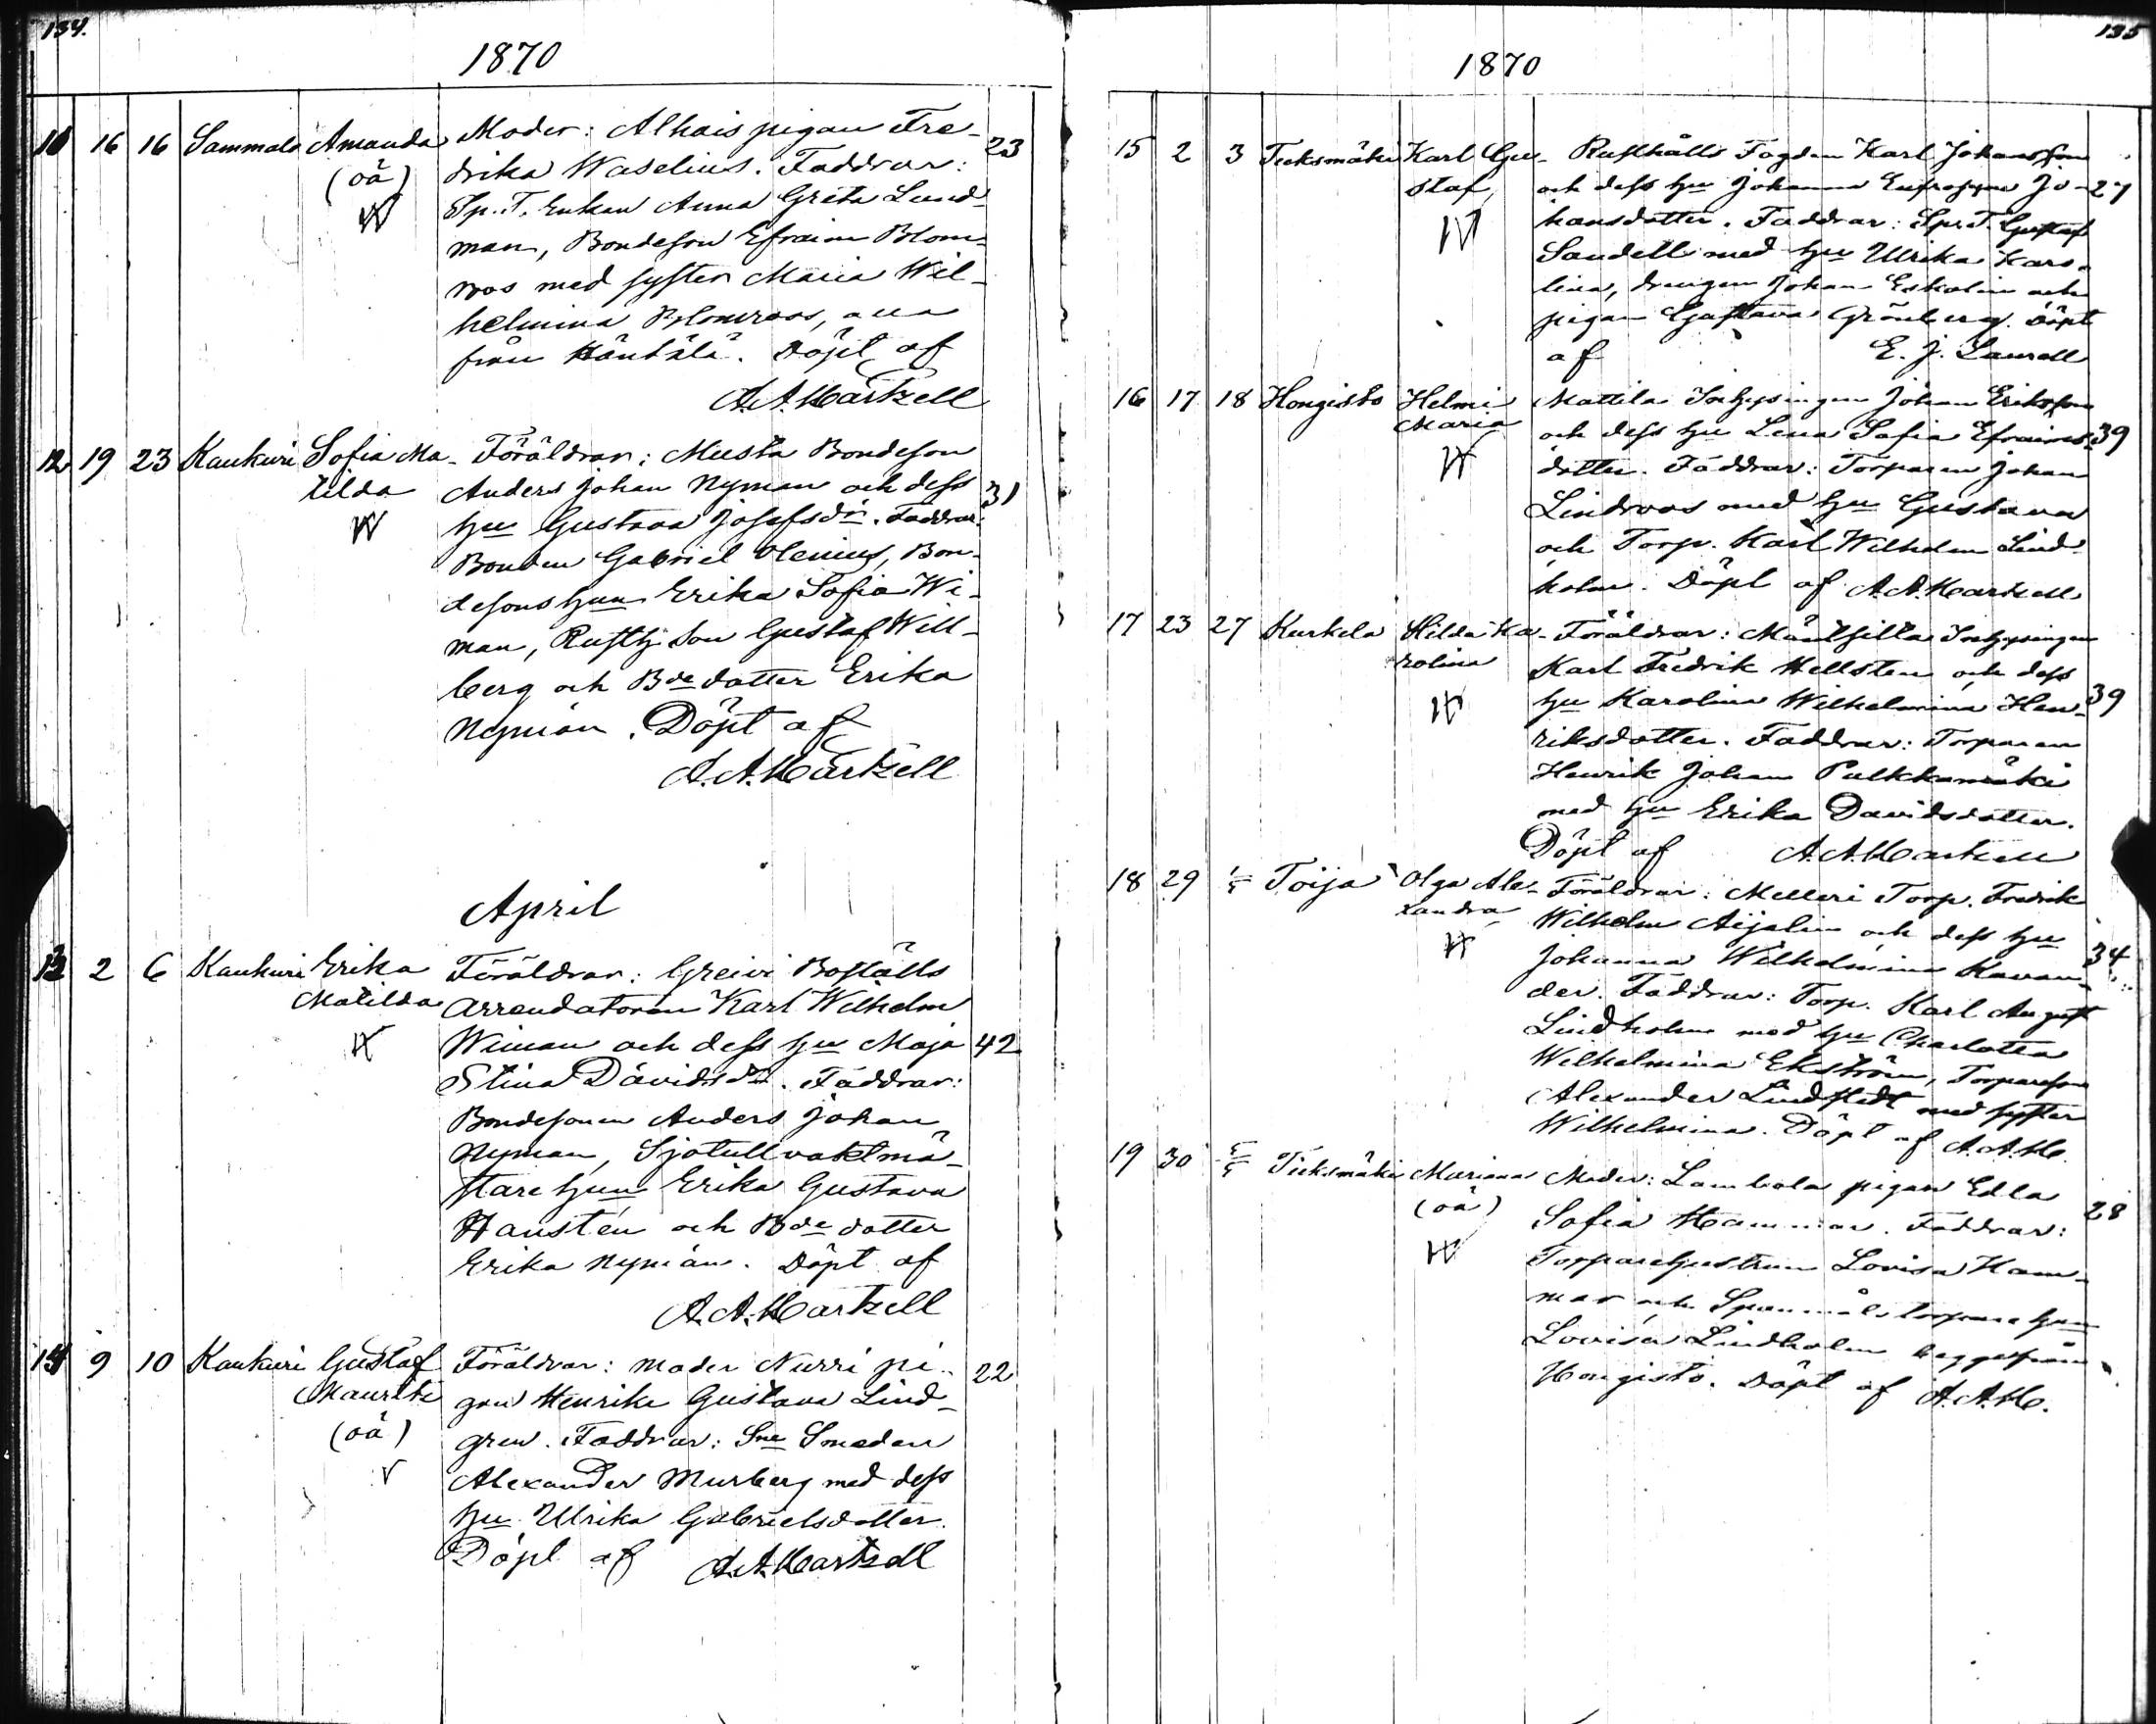 134.
1870
16 16 Sammalo Amanda Moder: Alhais pigan Fre- 23
(oä) drika Waselius. Faddrar:
Sp. T. Enkan Anna Greta Lund-
man, Bondeson Efraim Blom-
roos med syster Maria Wil-
helmina Blomroos, alla
från Häntälä. Döpt af
A. A. Hartzell
12 19 23 Kaukuri Sofia Ma- Föräldrar: Musta Bondeson
tilda Anders Johan Nyman och dess 31
hu Gustava Josefsdr. Faddrar:
Bonden Gabriel Olenius, Bon-
desons hun Erika Sofia Wi-
man, Rusth Son Gustaf Will-
berg och Bde dotter Erika
Nyman. Döpt af
A. A. Hartzell
April
13 2 6 Kaukuri Erika Föräldrar: Greivi Boställs
Matilda Arrendatoren Karl Wilhelm
Wiman och dess hu Maja 42
Stina Davidsdr. Faddrar:
Bondesonen Anders Johan
Nyman, Sjötullvaktmä-
stare hun Erika Gustava
Hausten och Bde dotter
Erika Nyman. Döpt af
A. A. Hartzell
14 9 10 Kaukuri Gustaf Föräldrar: Moder Nurri pi- 22
Mauritz gan Henrika Gustava Lind-
(oä) gren. Faddrar: Sne Smeden
Alexander Murberg med dess
hu Ulrika Gabrielsdotter.
Döpt af A. A. Hartzell
135
1870
15 2 3 Tieksmäki Karl Gu- Rusthålls Fogden Karl Johansson
staf och dess hu Johanna Eufrosyne Jo- 27
hansdotter. Faddrar: Spr. T. Gustaf
Sandell med hu Ulrika Karo-
lina, drengen Johan Eskolin och
pigan Gustava Grönberg. Döpt
af E. J. Laurell
16 17 18 Hongisto Helmi Mattila Inhysingen Johan Eriksson
Maria och dess hu Lena Sofia Efraims- 39
dotter. Faddrar: Torparen Johan
Lindroos med hu Gustava
och Torp. Karl Wilhelm Lind-
holm. Döpt af A. A. Hartzell
17 23 27 Kurkela Hilda Ka- Föräldrar: Mäntsilla Inhysingen
rolina Karl Fredrik Hellsten och dess
hu Karolina Wilhelmina Hen- 39
riksdotter. Faddrar: Torparen
Henrik Johan Pulkkamäki
med hu Erika Davidsdotter.
Döpt af A. A. Hartzell
18 29 1/5 Toija Olga Ale- Föräldrar: Melleri Torp. Fredrik
xandra Wilhelm Aijalin och dess hu
Johanna Wilhelmina Kavan- 34
der. Faddrar: Torp. Karl August
Lindholm med hu Charlotta
Wilhelmina Ekström, Torpareson
Alexander Lindstedt med syster
Wilhelmina. Döpt af A. A. H.
19 30 Tieksmäki Mariana Moder: Lambola pigan Edla
(oä) Sofia Hammar. Faddrar: 28
Torpare hustrun Lovisa Ham-
mar och Spannmåls torpare hun
Lovisa Lindholm begge från
Hongisto. Döpt af A. A. H.